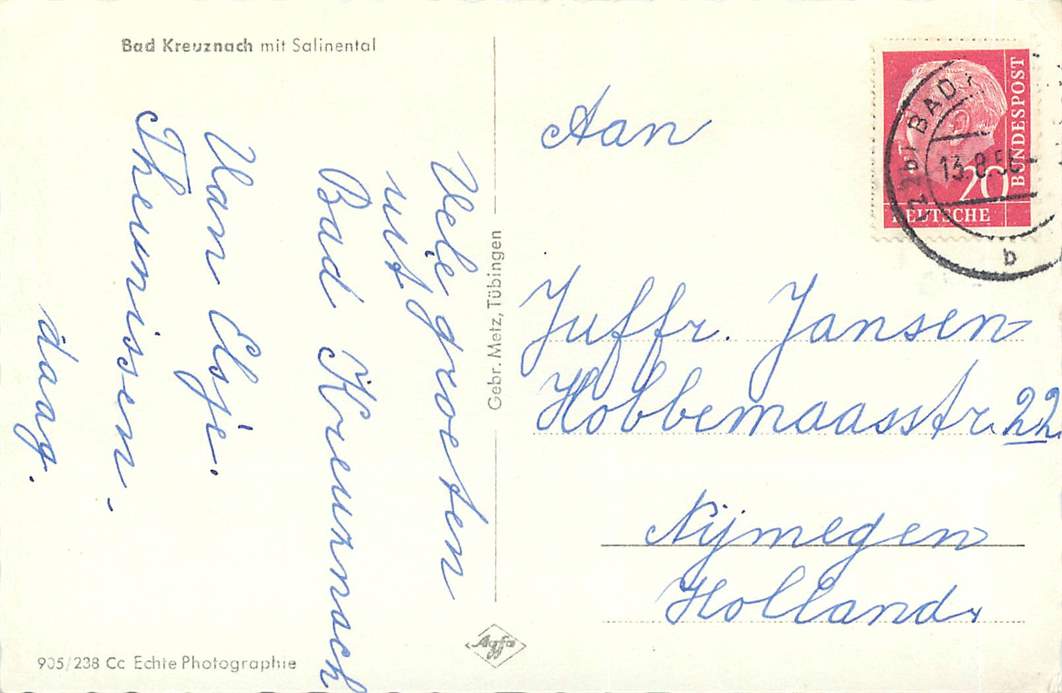 Bad Kreuznach mit Salinental
Vele groeten
uit
Bad Kreuznach
Van Elsje.
Theunissen.
daag.
Gebr. Metz, Tübingen
905/238 Cc Echte Photographie
Agfa
Aan
Juffr. Jansen
Hobbemaasstr. 22.
Nijmegen
Holland.
DEUTSCHE
BUNDESPOST
20
(22b) BAD
13.8.5
b